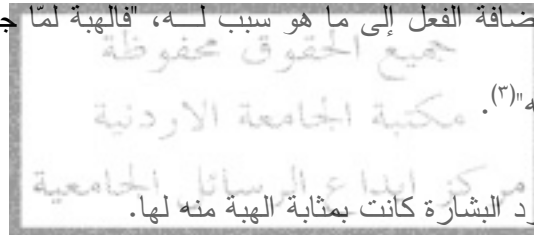 ضافة الفعل إلى ما هو سبب لـــه، "فالهبة لمّا
جميع الحقوق محفوظة
ه"(٣).
مكتبة الجامعة الاردنية
مركز ايداع الرسائل الجامعية
رد البشارة كانت بمثابة الهبة منه لها.